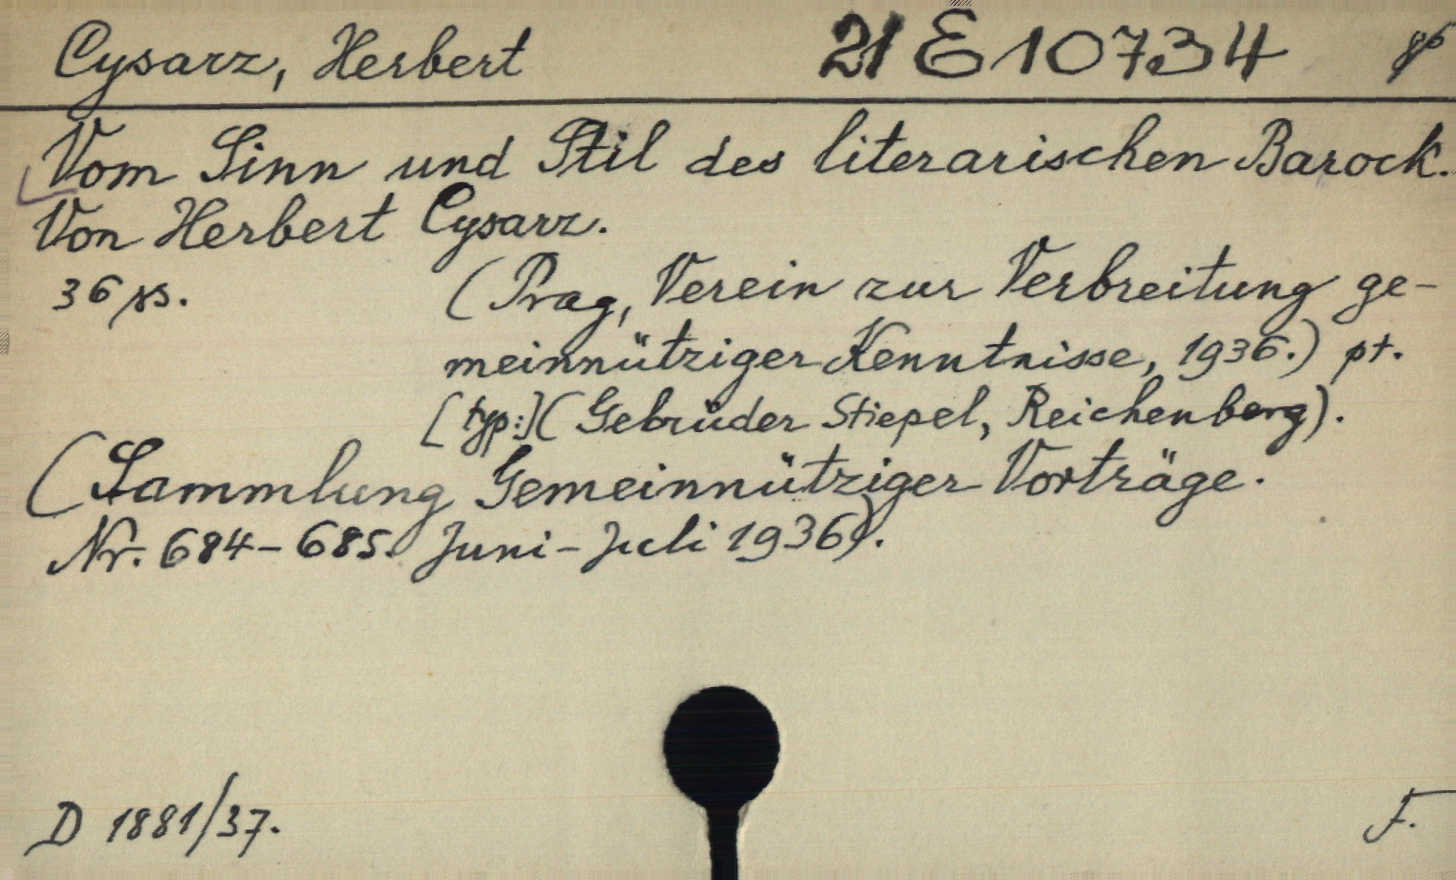 Cysarz, Herbert 21 E 10734
Vom Sinn und Stil des literarischen Barock.
Von Herbert Cysarz.
36 ss. (Prag, Verein zur Verbreitung ge-
meinnütziger Kenntnisse, 1936.) pt.
[typ:] (Gebrüder Stiepel, Reichenberg).
(Sammlung Gemeinnütziger Vorträge.
Nr. 684-685. Juni-Juli 1936).
D 1881/37. F.